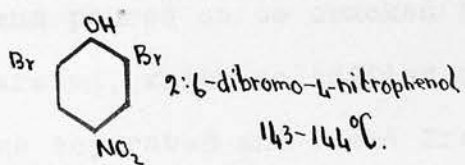 OH
Br
Br
2:6-dibromo-4-nitrophenol
NO2
143-144°C.